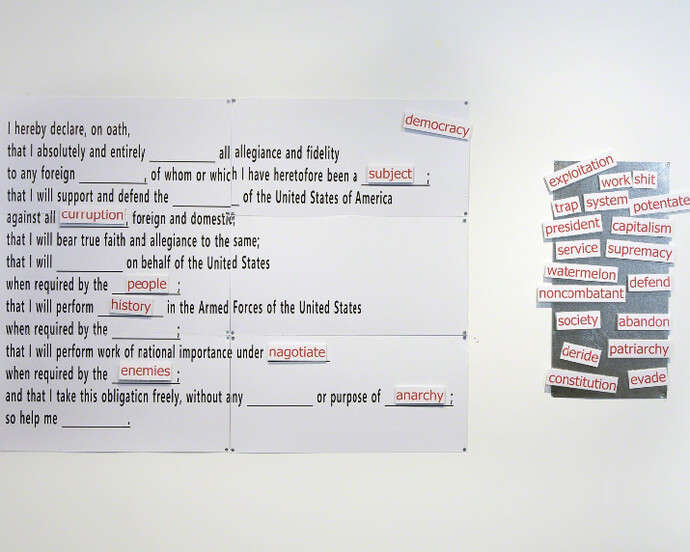 democracy
I hereby declare, on oath,
that I absolutely and entirely ____________ all allegiance and fidelity
to any foreign ____________, of whom or which I have heretofore been a subject ;
that I will support and defend the ____________ of the United States of America
against all curruption, foreign and domestic;
that I will bear true faith and allegiance to the same;
that I will ____________ on behalf of the United States
when required by the people ;
that I will perform history in the Armed Forces of the United States
when required by the ____________ ;
that I will perform work of national importance under nagotiate
when required by the enemies ;
and that I take this obligation freely, without any ____________ or purpose of anarchy ;
so help me ____________.
exploitation
work shit
trap system potentate
president capitalism
service supremacy
watermelon
defend
noncombatant
society abandon
deride patriarchy
constitution evade